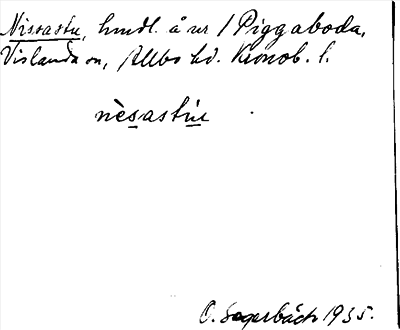 Nissastu, hmdl. å nr 1 Piggaboda,
Vislanda sn, Allbo hd. Kronob. l.
nèsastúu
O. Sagerbäck 1935.